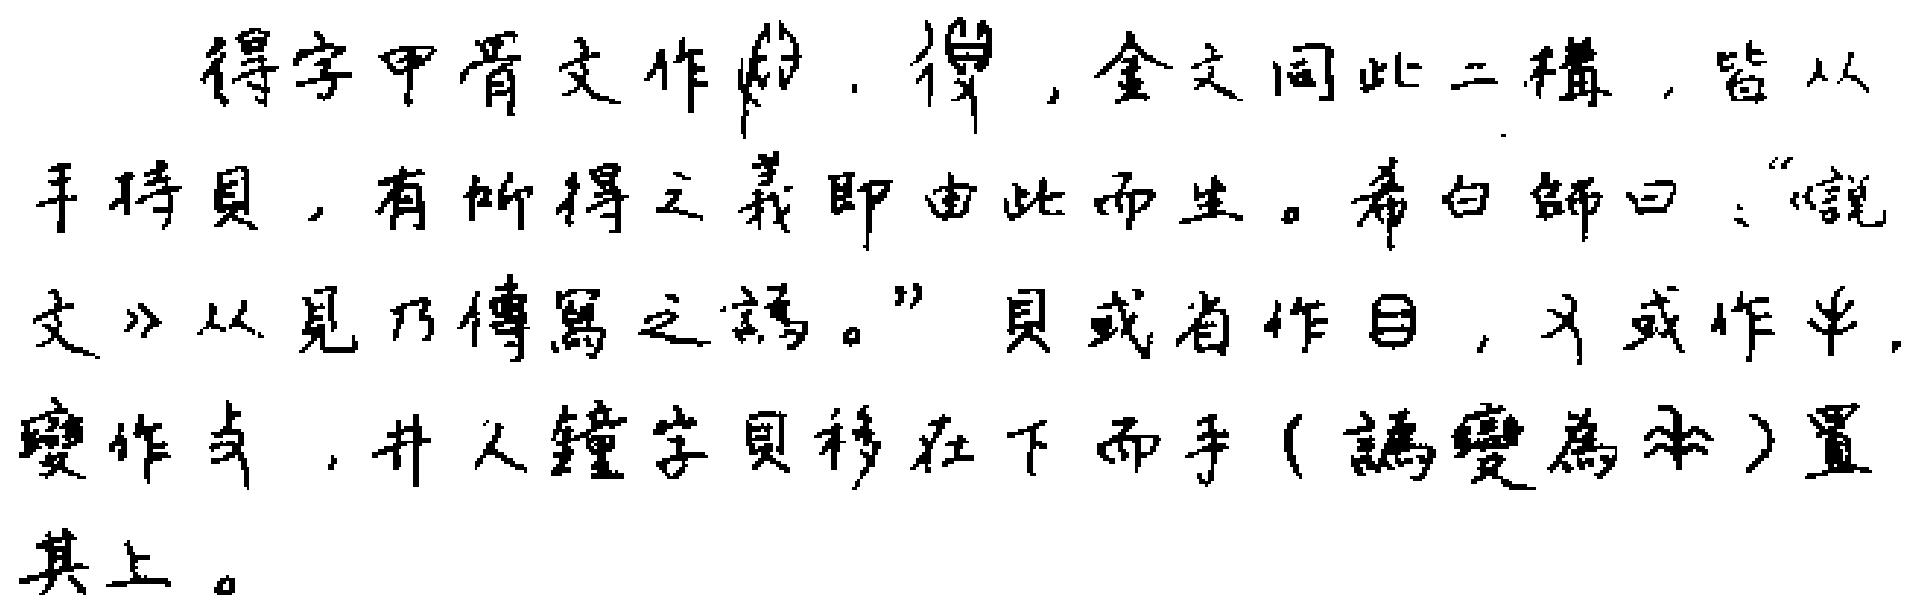 得字甲骨文作、，金文同此二構，皆从
手持貝，有所得之義即由此而生。希白師曰：“《說
文》从見乃傳寫之譌。”貝或省作目，又或作，
變作攴，井人鐘字貝移在下而手（譌變為）置
其上。